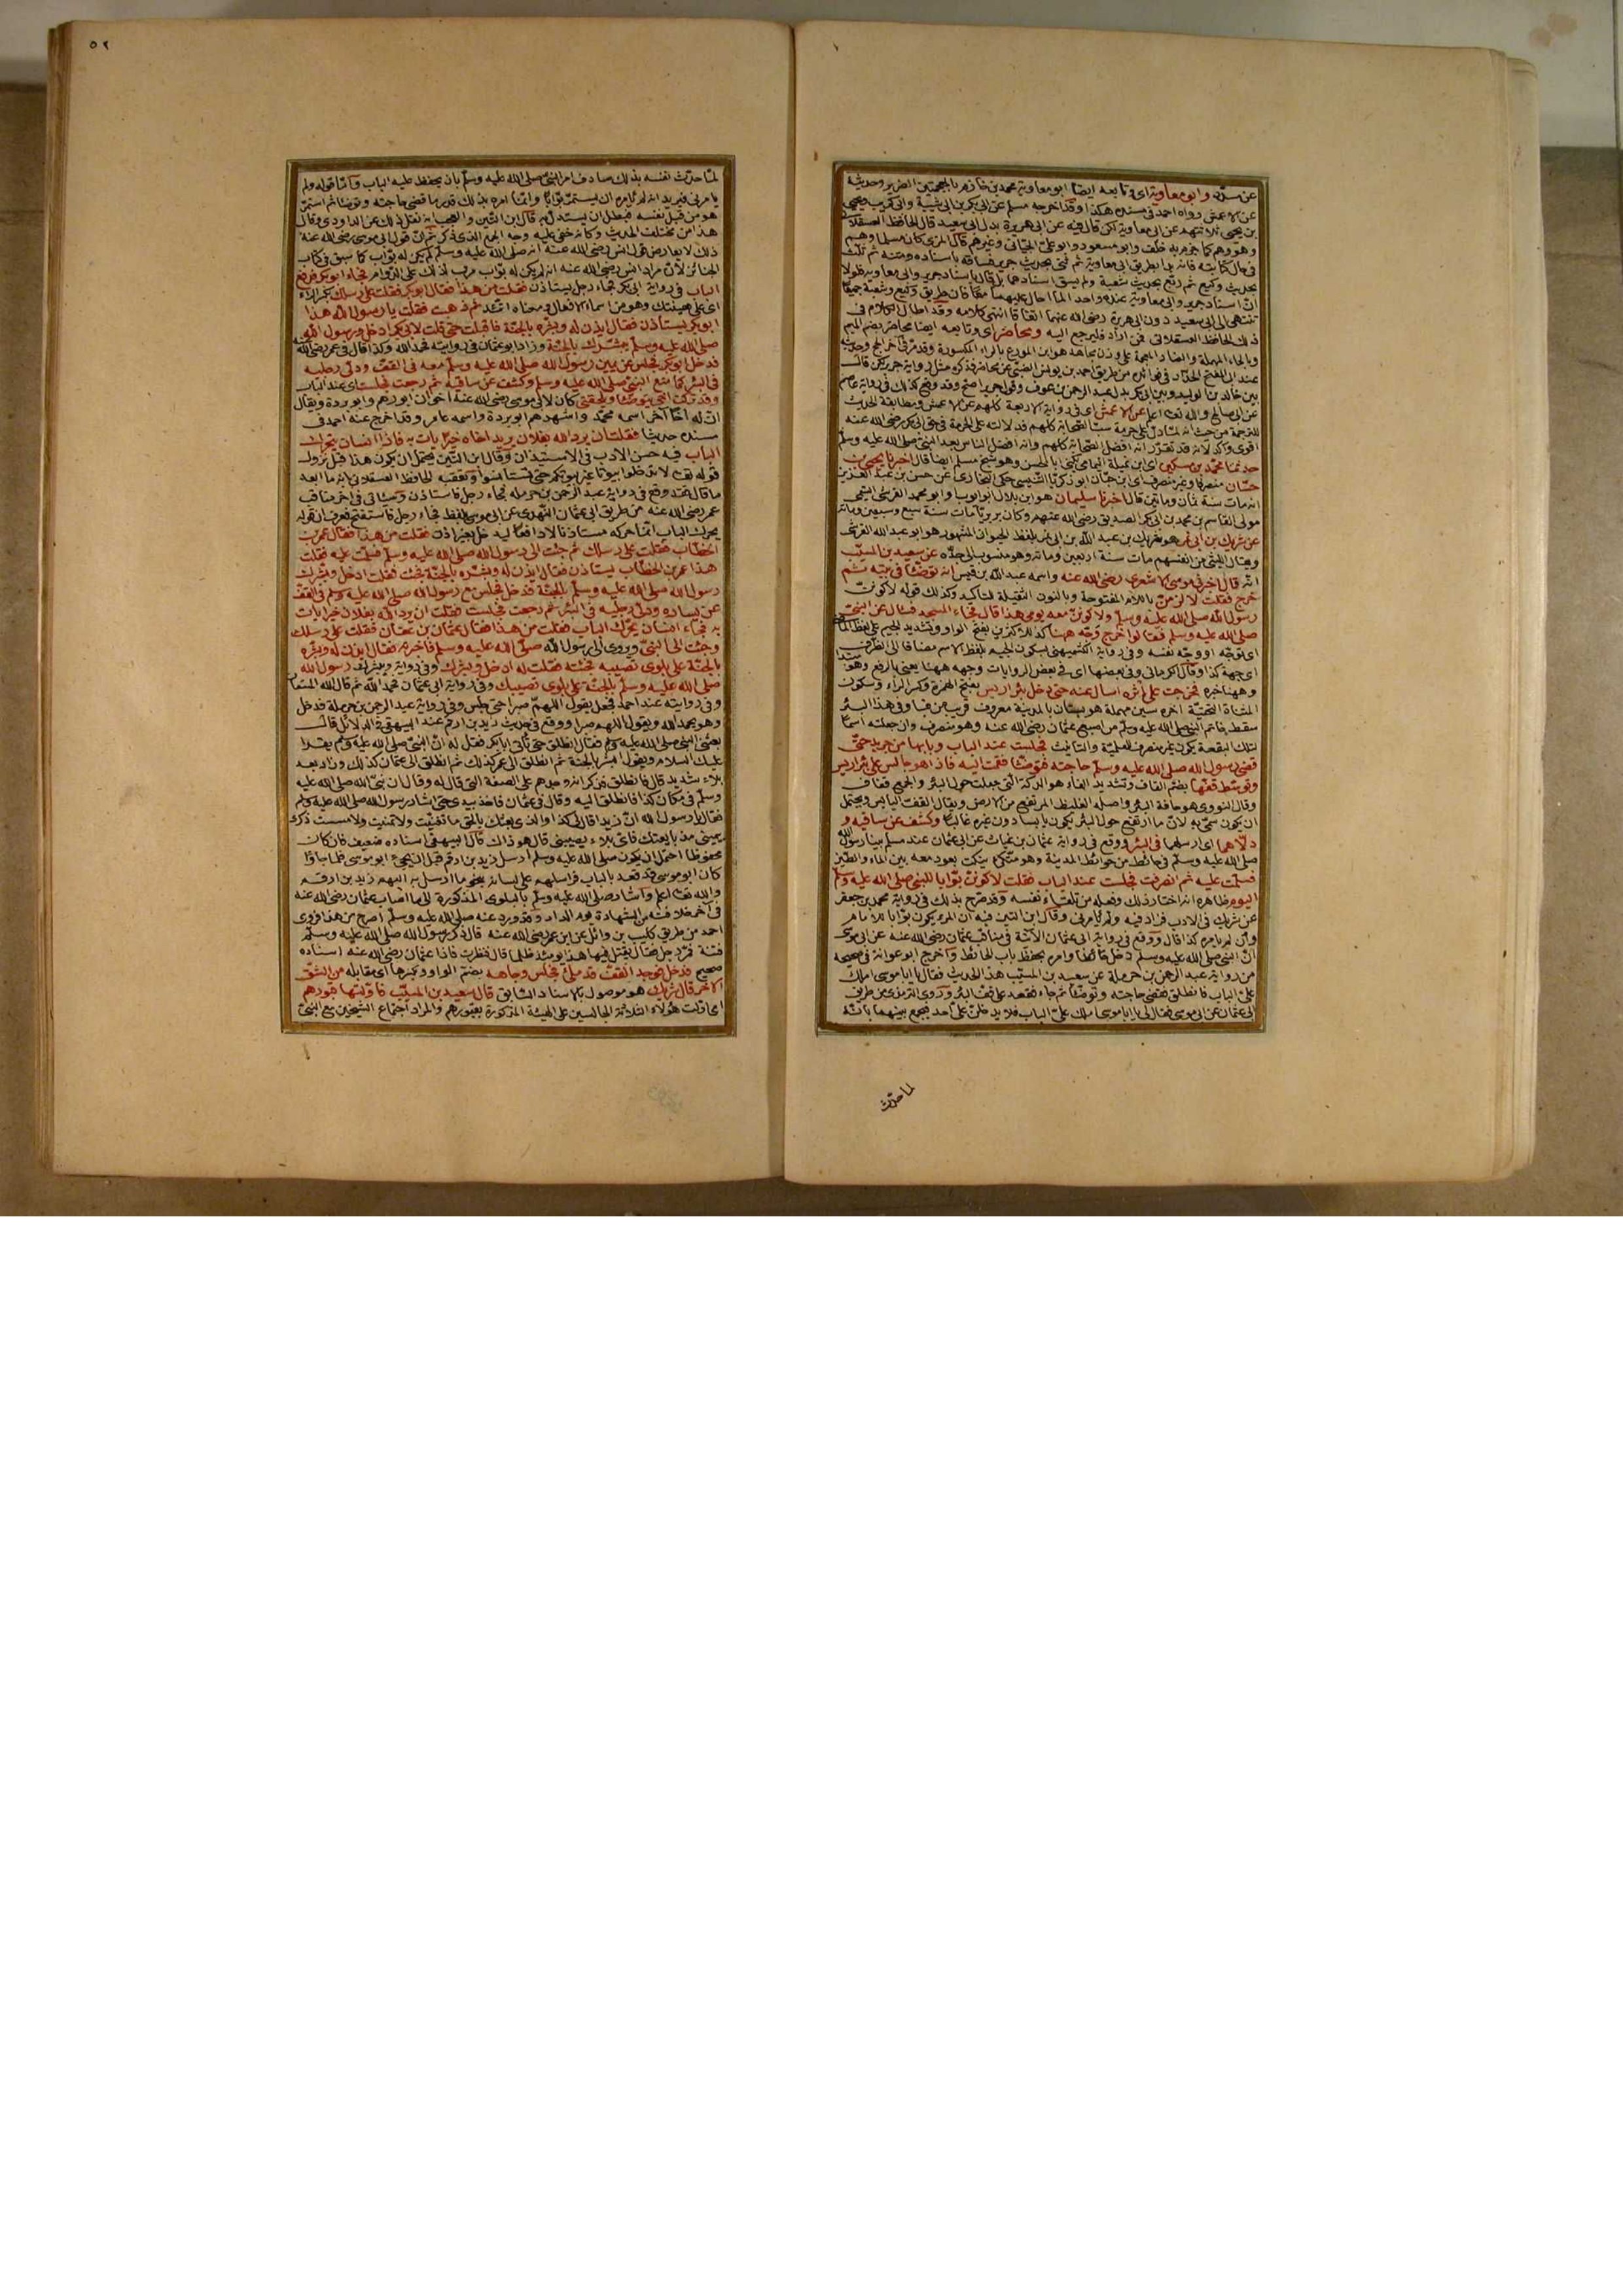 عن سلم وابو معاوية اى وتابعه ايضا ابو معاوية محمد بن خازم بالمعجمتين الضرير وحديثه
عن الاعمش رواه احمد فى مسنده هكذا وقد اخرجه مسلم عن ابى بكر بن ابى شيبة وابى كريب ويحيى
بن يحيى ثلاثتهم عن ابى معاوية لكن قال فيه عن ابى هريرة بدل ابى سعيد قال الحافظ العسقلانى
وهو وهم كما جزم به خلف وابو مسعود وابو على الجيانى وغيرهم قال المزى كان مسلما وهم
فى حال كتابته فانه بدا بطريق ابى معاوية ثم ثنى بحديث جرير فساقه باسناده ومتنه ثم ثلث
بحديث وكيع ثم ربع بحديث شعبة ولم يسق اسنادهما بل قال باسناد جرير وابى معاوية فلولا
ان اسناد جرير وابى معاوية عنده واحد لما احال عليهما معا فان طريق وكيع وشعبة جميعا
تنتهى الى ابى سعيد دون ابى هريرة رضى الله عنهما اتفاقا انتهى كلامه وقد اطال الكلام فى
ذلك الحافظ العسقلانى فمن اراد فليرجع اليه ومحاضر اى وتابعه ايضا محاضر بضم الميم
وبالحاء المهملة والضاد المعجمة على وزن مجاهد هو ابن المورع بالراء المكسورة وقد مر فى اخر الحج وحديثه
عند ابى الفتح الحداد فى فوائده من طريق احمد بن يونس الضبى عن محاضر فذكره مثل رواية جرير لكن قال
بين خالد بن الوليد وبين ابى بكر بدل عبد الرحمن بن عوف وقول جرير اصح وقد وقع كذلك فى رواية عاصم
عن ابى صالح والله تعالى اعلم عن الاعمش اى فى رواية الاربعة كلهم عن الاعمش ومطابقة الحديث
للترجمة من حيث انه لما دل على حرمة سب الصحابة كلهم فدلالته على الحرمة فى حق ابى بكر رضى الله عنه
اقوى واكد لانه قد تقرر انه افضل الصحابة كلهم وانه افضل الناس بعد النبى صلى الله عليه وسلم
حدثنا محمد بن مسكين اى ابن نميلة اليمامى يكنى ابا الحسن وهو شيخ مسلم ايضا قال اخبرنا يحيى بن
حسان منصرفا وغير منصرف اى ابن حيان ابو زكريا التنيسى حكى البخارى عن حسن بن عبد العزيز
انه مات سنة ثمان وماتين قال اخبرنا سليمان هو ابن بلال ابو ايوب وابو محمد القرشى التيمى
مولى القاسم بن محمد بن ابى بكر الصديق رضى الله عنهم وكان بربريا مات سنة سبع وسبعين ومائة
عن شريك بن ابى نمر هو شريك بن عبد الله بن ابى نمر بلفظ الحيوان المشهور هو ابو عبد الله القرشى
ويقال الليثى من انفسهم مات سنة اربعين ومائة وهو منسوب الى جده عن سعيد بن المسيب
انه قال اخبرنى ابو موسى الاشعرى رضى الله عنه واسمه عبد الله بن قيس انه توضأ فى بيته ثم
خرج فقلت لالزمن باللام المفتوحة وبالنون الثقيلة للتأكيد وكذلك قوله لاكونن
رسول الله صلى الله عليه وسلم ولاكونن معه يومى هذا قال فجاء المسجد فسال عن النبى
صلى الله عليه وسلم فقالوا خرج ووجه ههنا كذا للاكثرين بفتح الواو وتشديد الجيم على لفظ الماضى
اى توجه او وجه نفسه وفى رواية الكشميهنى بسكون الجيم بلفظ الاسم مضافا الى الظرف
اى جهة كذا وقال الكرمانى وفى بعضها اى فى بعض الروايات وجهه ههنا يعنى بالرفع وهو مبتدا
وههنا خبره فخرجت على اثره اسال عنه حتى دخل بئر اريس بفتح الهمزة وكسر الراء وسكون
المثناة التحتية اخره سين مهملة هو بستان بالمدينة معروف قريب من قبا وفى هذا البئر
سقط خاتم النبى صلى الله عليه وسلم من اصبع عثمان رضى الله عنه وهو منصرف وان جعلته اسما
لتلك البقعة يكون غير منصرف للعلمية والتانيث فجلست عند الباب وبابها من جريد حتى
قضى رسول الله صلى الله عليه وسلم حاجته فتوضأ فقمت اليه فاذا هو جالس على بئر اريس
وتوسط قفها بضم القاف وتشديد الفاء هو الدكة التى جعلت حول البئر والجمع قفاف
وقال النووى هو حافة البئر واصله الغليظ المرتفع من الارض ويقال القف اليابس ويحتمل
ان يكون سمى به لان ما ارتفع حول البئر يكون يابسا دون غيره غالبا وكشف عن ساقيه و
دلاهما اى ارسلهما فى البئر ووقع فى رواية عثمان بن غياث عن ابى عثمان عند مسلم بينا رسول الله
صلى الله عليه وسلم فى حائط من حوائط المدينة وهو متكئ ينكت بعود معه بين الماء والطين
فسلمت عليه ثم انصرفت فجلست عند الباب فقلت لاكونن بوابا للنبى صلى الله عليه وسلم
اليوم ظاهره انه اختار ذلك وفعله من تلقاء نفسه وقد صرح بذلك فى رواية محمد بن جعفر
عن شريك فى الادب فزاد فيه ولم يأمرنى وقال ابن التين فيه ان المرء يكون بوابا للامام
وان لم يامره كذا قال ووقع فى رواية ابى عثمان الآتية فى مناقب عثمان رضى الله عنه عن ابى موسى
ان النبى صلى الله عليه وسلم دخل حائطا وامره بحفظ باب الحائط واخرج ابو عوانة فى صحيحه
من رواية عبد الرحمن بن حرملة عن سعيد بن المسيب هذا الحديث فقال يا ابا موسى املك
على الباب فانطلق فقضى حاجته وتوضأ ثم جاء فقعد على قف البئر وروى الترمذى من طريق
ابى عثمان عن ابى موسى فقال لى يا ابا موسى املك على الباب فلا يدخلن على احد فيجمع بينهما بانه
لما حدث
٥٢
لما حدث نفسه بذلك صادف امر النبى صلى الله عليه وسلم بان يحفظ عليه الباب واما قوله ولم
يامرنى فيريد انه لم يامره ان يستمر بوابا وانما امره بذلك قدر ما قضى حاجته وتوضأ ثم استمر
هو من قبل نفسه فبطل ان يستدل به قال ابن التين والعجب انه نقل ذلك عن الداودى وقال
هذا من مختلف الحديث وكانه خفى عليه وجه الجمع الذى ذكر ثم ان قول ابى موسى رضى الله عنه
ذلك لا يعارض قول انس رضى الله عنه انه صلى الله عليه وسلم لم يكن له بواب كما سبق فى كتاب
الجنائز لان مراد انس رضى الله عنه انه لم يكن له بواب مرتب لذلك على الدوام فجاء ابو بكر فدفع
الباب فى رواية ابى بكر فجاء رجل يستاذن فقلت من هذا فقال ابو بكر فقلت على رسلك بكسر الراء
اى على هينتك وهو من اسماء الافعال ومعناه اتئد ثم ذهبت فقلت يا رسول الله هذا
ابو بكر يستاذن فقال ائذن له وبشره بالجنة فاقبلت حتى قلت لابى بكر ادخل ورسول الله
صلى الله عليه وسلم يبشرك بالجنة وزاد ابو عثمان فى روايته فحمد الله وكذا قال فى عمر رضى الله عنه
فدخل ابو بكر فجلس عن يمين رسول الله صلى الله عليه وسلم معه فى القف ودلى رجليه
فى البئر كما صنع النبى صلى الله عليه وسلم وكشف عن ساقيه ثم رجعت فجلست اى عند الباب
وقد تركت اخى يتوضأ ويلحقنى كان لابى موسى رضى الله عنه اخوان ابو رهم وابو بردة ويقال
ان له اخا آخر اسمه محمد واشهرهم ابو بردة واسمه عامر وقد اخرج عنه احمد فى
مسنده حديثا فقلت ان يرد الله بفلان يريد اخاه خيرا يات به فاذا انسان يحرك
الباب فيه حسن الادب فى الاستيذان وقال ابن التين يحتمل ان يكون هذا قبل نزول
قوله تعالى لا تدخلوا بيوتا غير بيوتكم حتى تستأنسوا وتعقبه الحافظ العسقلانى بانه ما ابعد
ما قال فقد وقع فى رواية عبد الرحمن بن حرملة فجاء رجل فاستاذن وسياتى فى اخر مناقب
عمر رضى الله عنه من طريق ابى عثمان النهدى عن ابى موسى بلفظ فجاء رجل فاستفتح فعرف ان قوله
يحرك الباب انما حركه مستاذنا لا دافعا ليدخل بغير اذن فقلت من هذا فقال عمر بن
الخطاب فقلت على رسلك ثم جئت الى رسول الله صلى الله عليه وسلم فسلمت عليه فقلت
هذا عمر بن الخطاب يستاذن فقال ائذن له وبشره بالجنة فجئت فقلت ادخل وبشرك
رسول الله صلى الله عليه وسلم بالجنة فدخل فجلس مع رسول الله صلى الله عليه وسلم فى القف
عن يساره ودلى رجليه فى البئر ثم رجعت فجلست فقلت ان يرد الله بفلان خيرا يات
به فجاء انسان يحرك الباب فقلت من هذا فقال عثمان بن عفان فقلت على رسلك
وجئت الى النبى ويروى الى رسول الله صلى الله عليه وسلم فاخبرته فقال ائذن له وبشره
بالجنة على بلوى تصيبه فجئته فقلت له ادخل وبشرك وفى رواية ويبشرك رسول الله
صلى الله عليه وسلم بالجنة على بلوى تصيبك وفى رواية ابى عثمان فحمد الله ثم قال الله المستعان
وفى روايته عند احمد فجعل يقول اللهم صبرا حتى جلس وفى رواية عبد الرحمن بن حرملة فدخل
وهو يحمد الله ويقول اللهم صبرا ووقع فى حديث زيد بن ارقم عند البيهقى فى الدلائل قال
بعثنى النبى صلى الله عليه وسلم فقال انطلق حتى تأتى ابا بكر فقل له ان النبى صلى الله عليه وسلم يقرأ
عليك السلام ويقول ابشر بالجنة ثم انطلق الى عمر كذلك ثم انطلق الى عثمان كذلك وزاد بعد
بلاء شديد قال فانطلق فذكر انه وجدهم على الصفة التى قال له وقال اين نبى الله صلى الله عليه
وسلم فى مكان كذا فانطلق اليه وقال فى عثمان فاخذ بيدى حتى اتينا رسول الله صلى الله عليه وسلم
فقال يا رسول الله ان زيدا قال لى كذا والذى بعثك بالحق ما تغنيت ولا تمنيت ولا مسست ذكرى
بيمينى منذ بايعتك فاى بلاء يصيبنى قال هو ذاك قال البيهقى اسناده ضعيف فان كان
محفوظا احتمل ان يكون صلى الله عليه وسلم ارسل زيد بن ارقم قبل ان يجيء ابو موسى فلما جاؤا
كان ابو موسى قد قعد بالباب فراسلهم على لسانه بنحو ما ارسل به اليهم زيد بن ارقم
والله تعالى اعلم واشار صلى الله عليه وسلم بالبلوى المذكورة الى ما اصاب عثمان رضى الله عنه
فى آخر خلافته من الشهادة يوم الدار وقد ورد عنه صلى الله عليه وسلم اصرح من هذا فروى
احمد من طريق كليب بن وائل عن ابن عمر رضى الله عنه قال ذكر رسول الله صلى الله عليه وسلم
فتنة فمر رجل فقال يقتل فيها هذا يومئذ ظلما قال فنظرت فاذا عثمان رضى الله عنه اسناده
صحيح فدخل فوجد القف قد ملئ فجلس وجاهه بضم الواو وكسرها اى مقابله من الشق
الآخر قال شريك هو موصول بالاسناد السابق قال سعيد بن المسيب فاولتها قبورهم
اى اولت هؤلاء الثلاثة الجالسين على الهيئة المذكورة بقبورهم والمراد اجتماع الشيخين مع النبى